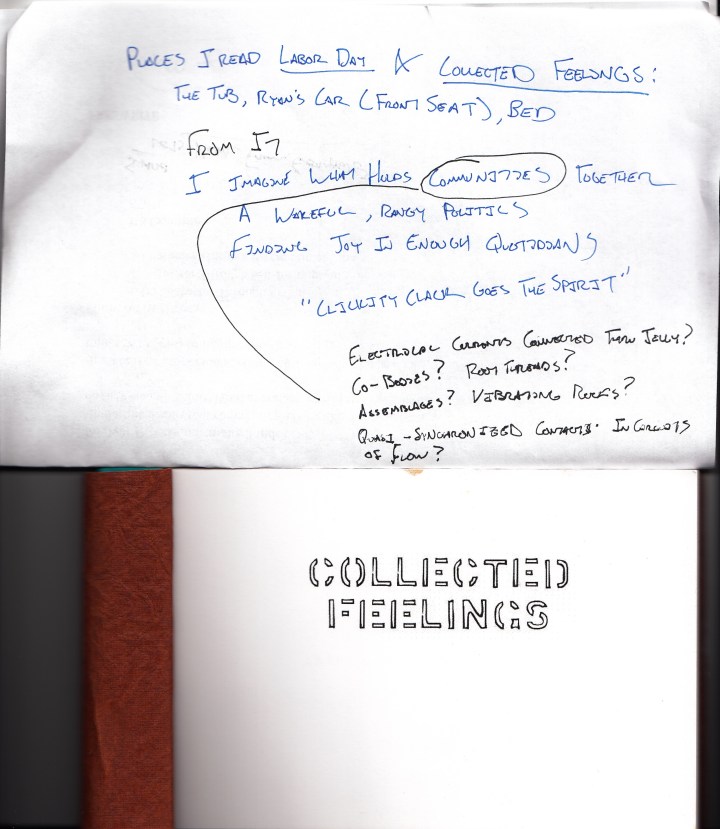 PLACES I READ LABOR DAY & COLLECTED FEELINGS:
THE TUB, RYAN'S CAR (FRONT SEAT), BED
FROM IT
I IMAGINE WHAT HOLDS COMMUNITIES TOGETHER
A WAKEFUL, RANGY POLITICS
FINDING JOY IN ENOUGH QUOTIDIANS
"CLICKITY CLACK GOES THE SPIRIT"
ELECTRICAL CURRENTS CONNECTED THRU JELLY?
CO-BODIES? ROOT THREADS?
ASSEMBLAGES? VIBRATING ROCKS?
QUASI-SYNCHRONIZED CONTACTS IN CIRCUITS
OF FLOW?
COLLECTED
FEELINGS